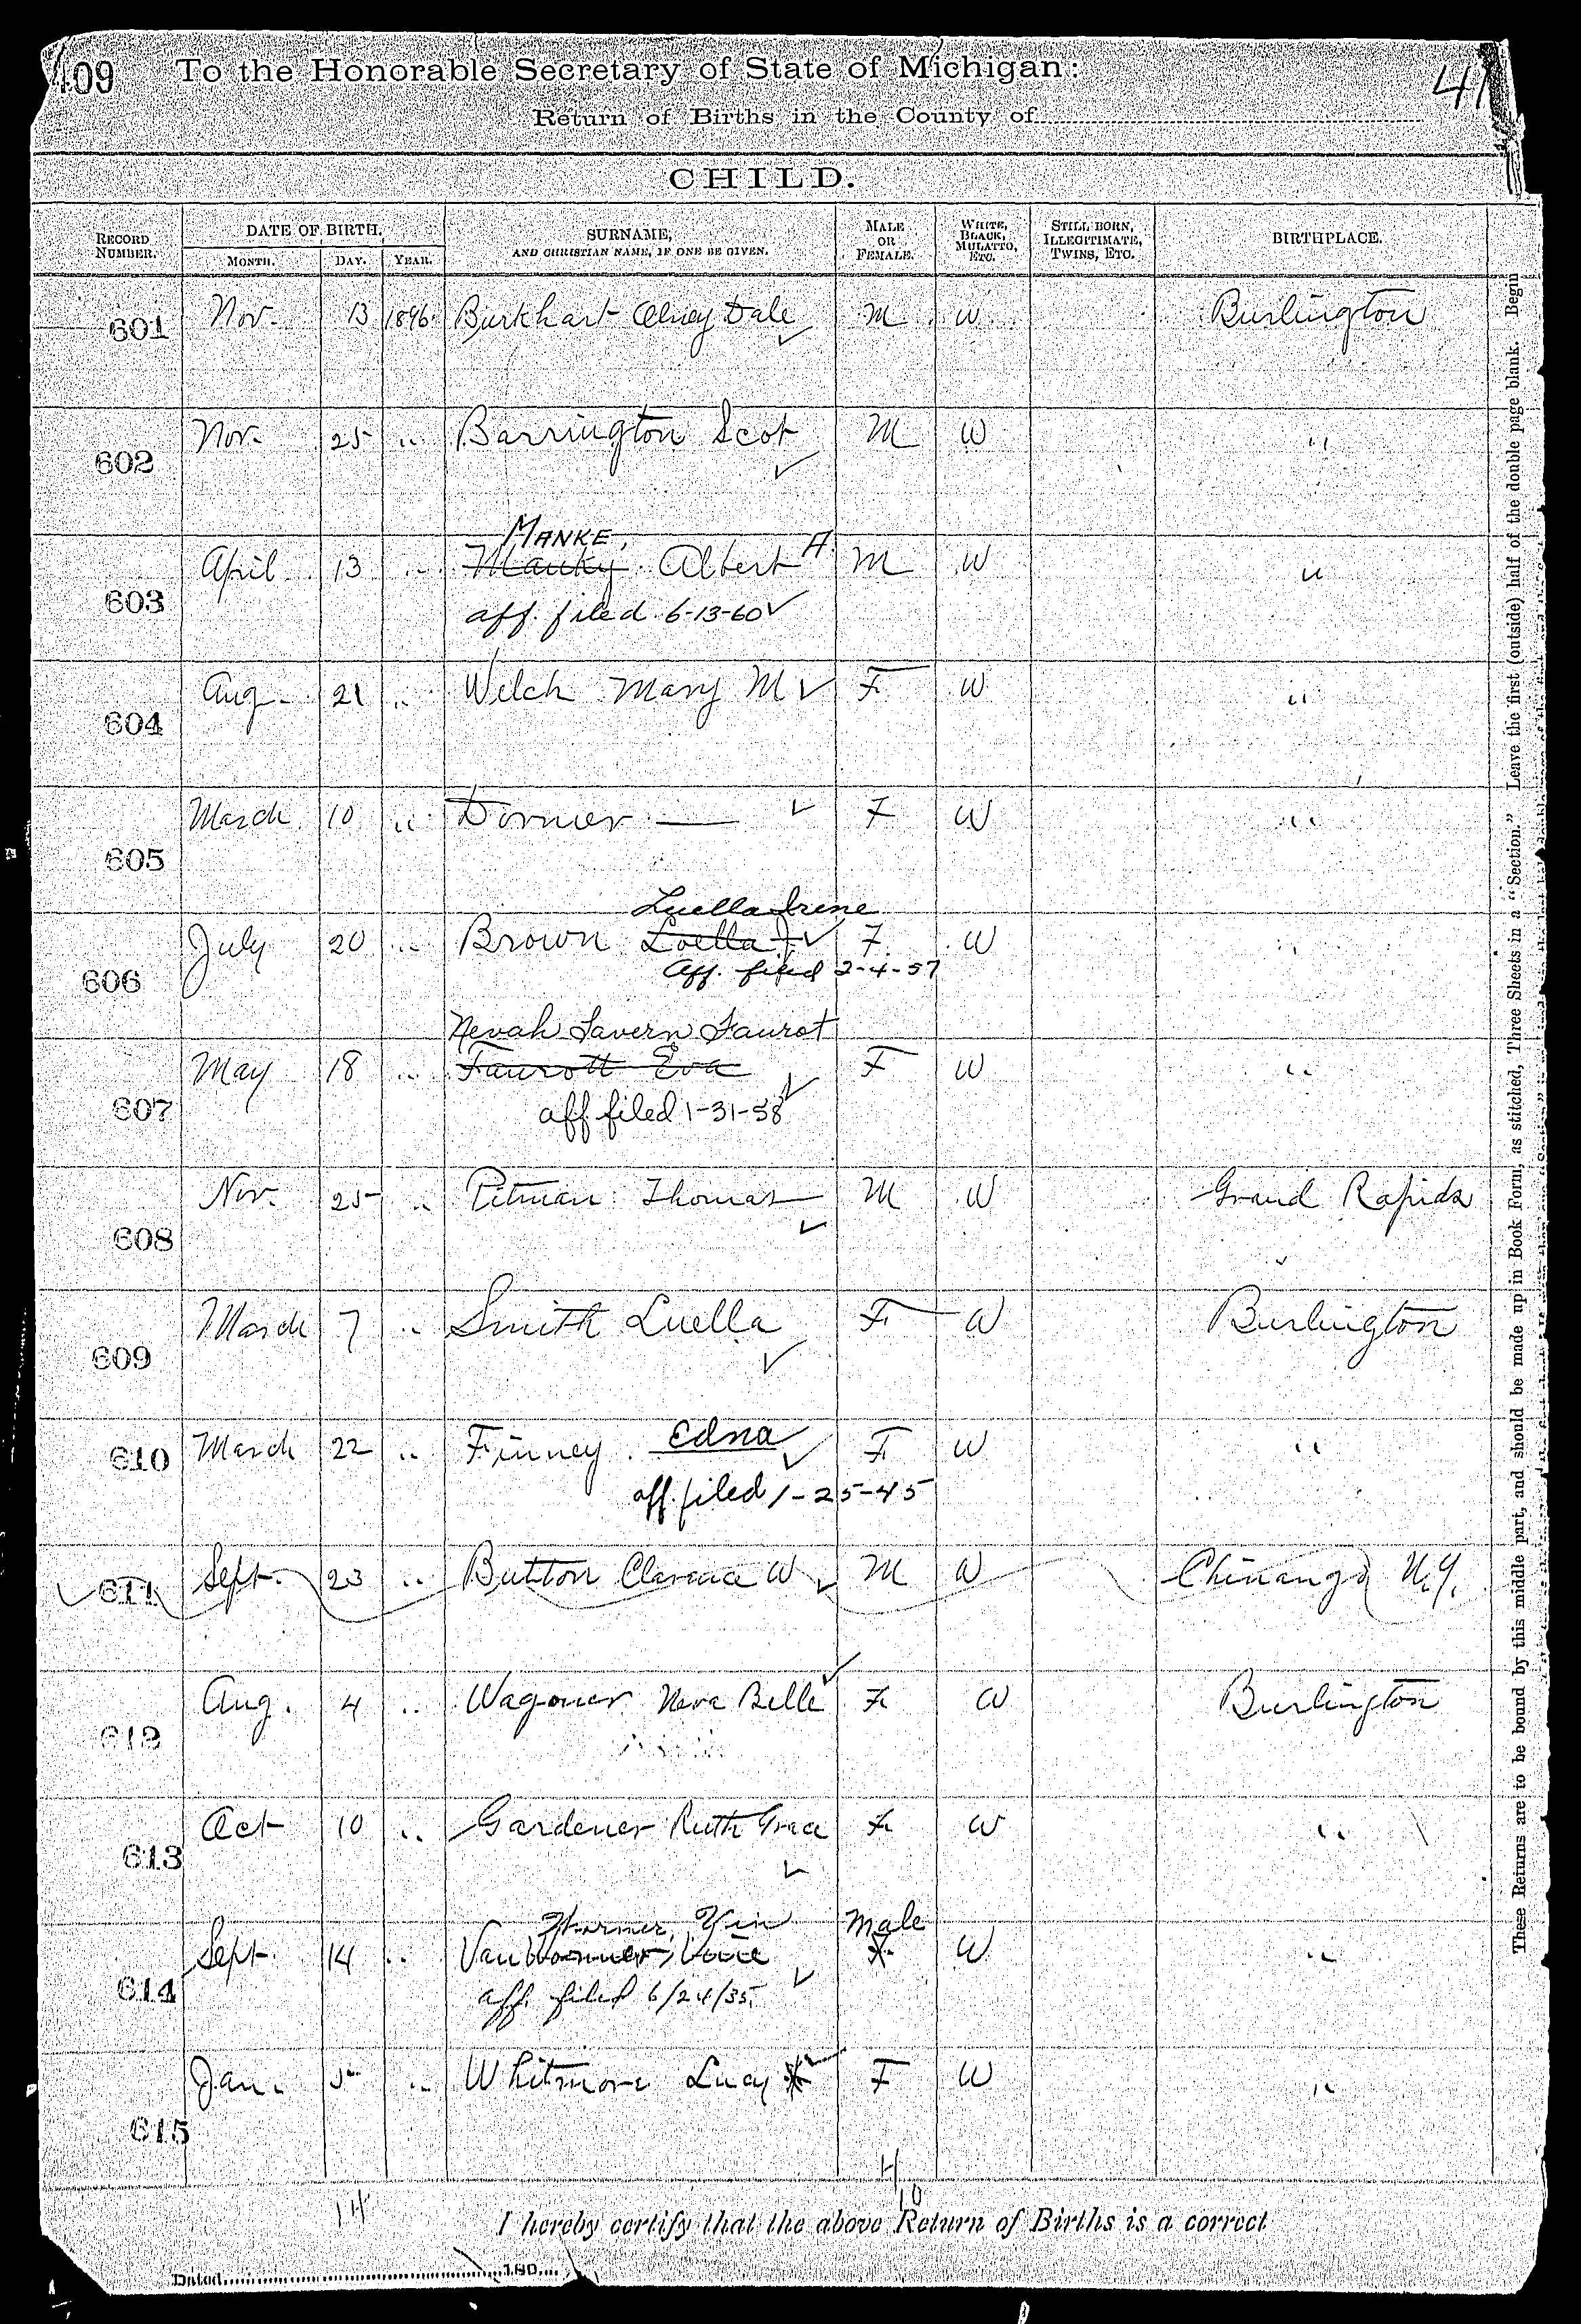 409 To the Honorable Secretary of State of Michigan: 41
Return of Births in the County of
CHILD.
RECORD NUMBER. DATE OF BIRTH. MONTH. DAY. YEAR. SURNAME, AND CHRISTIAN NAME, IF ONE BE GIVEN. MALE OR FEMALE. WHITE, BLACK, MULATTO, ETC. STILL BORN, ILLEGITIMATE, TWINS, ETC. BIRTHPLACE.
601 Nov. 13 1896 Burkhart Olney Dale M W Burlington
602 Nov. 25 " Barrington Scot M W "
MANKE,
603 April 13 " Manky Albert A. M W "
aff. filed 6-13-60
604 Aug. 21 " Welch Mary M F W "
605 March 10 " Dorner — F W "
Luella Irene
606 July 20 " Brown Loella J. F. W "
Aff. filed 2-4-57
Nevah Lavern Faurot
607 May 18 " Faurott Eva F W "
aff filed 1-31-58
608 Nov. 25 " Pitman Thomas M W Grand Rapids
609 March 7 " Smith Luella F W Burlington
610 March 22 " Finney Edna F W "
aff. filed 1-25-45
611 Sept. 23 " Button Clarence W M W Chenango N.Y.
612 Aug. 4 " Wagoner Neva Belle F W Burlington
613 Oct 10 " Gardener Ruth Grace F W "
Vin Male
614 Sept. 14 " Van W "
aff. filed 6/24/35
615 Jan. 5 " Whitmore Lucy F W "
4
14 10
I hereby certify that the above Return of Births is a correct
Dated 180
These Returns are to be bound by this middle part, and should be made up in Book Form, as stitched, Three Sheets in a "Section." Leave the first (outside) half of the double page blank. Begin